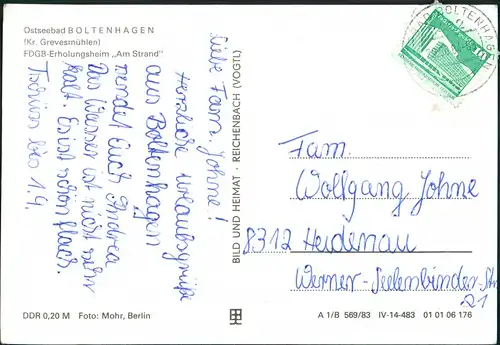 Ostseebad BOLTENHAGEN
(Kr. Grevesmühlen)
FDGB-Erholungsheim „Am Strand"
Liebe Fam. Johne!
Herzliche Urlaubsgrüße
aus Boltenhagen
sendet Euch Andrea
Das Wasser ist nicht sehr
kalt. Es ist schön flach.
Tschüss bis 1.9.
BILD UND HEIMAT · REICHENBACH (VOGTL)
BOLTENHAGEN
10
Fam.
Wolfgang Johne
8312 Heidenau
Werner-Seelenbinder-Str.
21
DDR 0,20 M Foto: Mohr, Berlin
A 1/B 569/83 IV-14-483 01 01 06 176